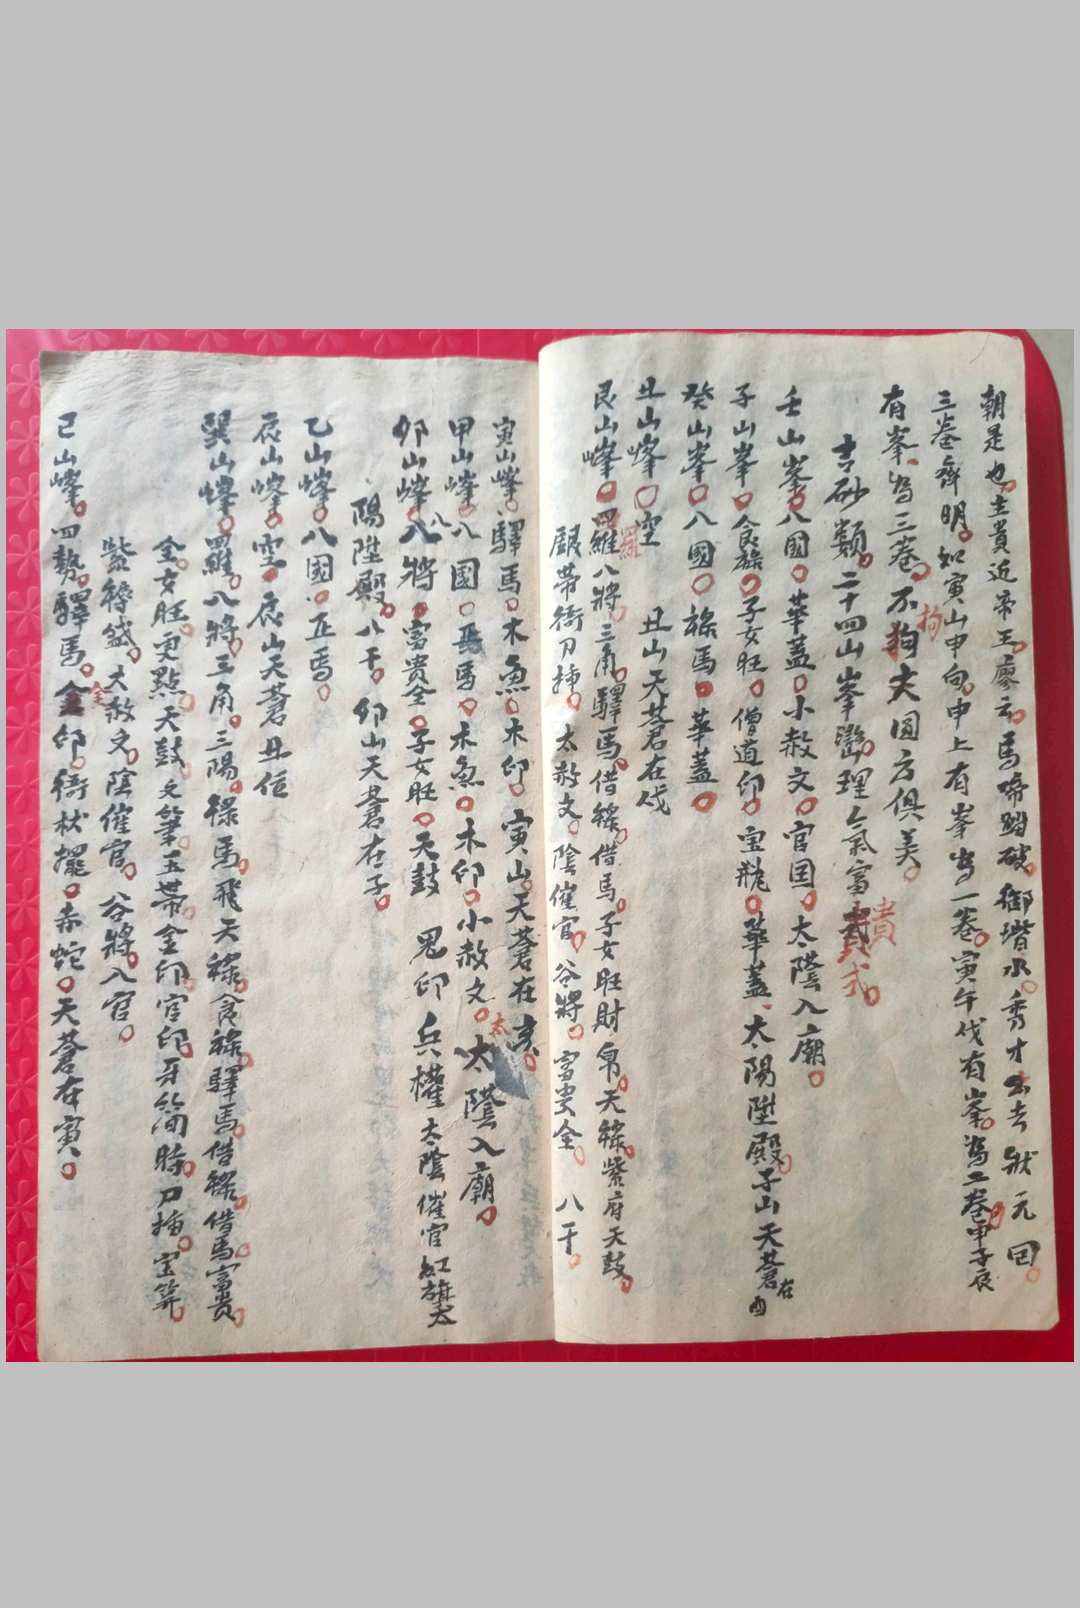 朝是也主貴近帝王廖云馬啼踏破御堦水秀才出去狀元回
三卷齊明如寅山申向申上有峯為一卷寅午戌有峯為二卷甲子辰
有峯為三卷不狥拘尖圓方俱美
吉砂類二十四山峯巒理氣富貴貴式
壬山峯八國華蓋小赦文官国太陰入廟
子山峯食祿子女旺僧道印宝瓶華蓋太陽陞殿子山天蒼在酉
癸山峯八國祿馬華蓋
丑山峰空 丑山天蒼在戌
艮山峰羅羅八將三角驛馬借祿借馬子女旺財帛天祿紫府天鼓
銀帶衙刀插太赦文陰催官谷將富貴全 八干
寅山峰驛馬木魚木印寅山天蒼在亥
甲山峰八國馬木魚木印小赦文太太陰入廟
卯山峰八八將富貴全子女旺天鼓 鬼印 兵權太陰催官紅旗太
陽陞殿八干卯山天蒼在子
乙山峰八國正馬
辰山峰空辰山天蒼丑位
巽山峰羅八將三角三陽祿馬飛天祿食祿驛馬借祿借馬富貴
全女旺更點天鼓文筆玉帶金印官印牙简時刀插宝笄
紫衣大赦文陰催官谷將入官
巳山峰四勢驛馬金金印衙杖擺赤蛇天蒼在寅